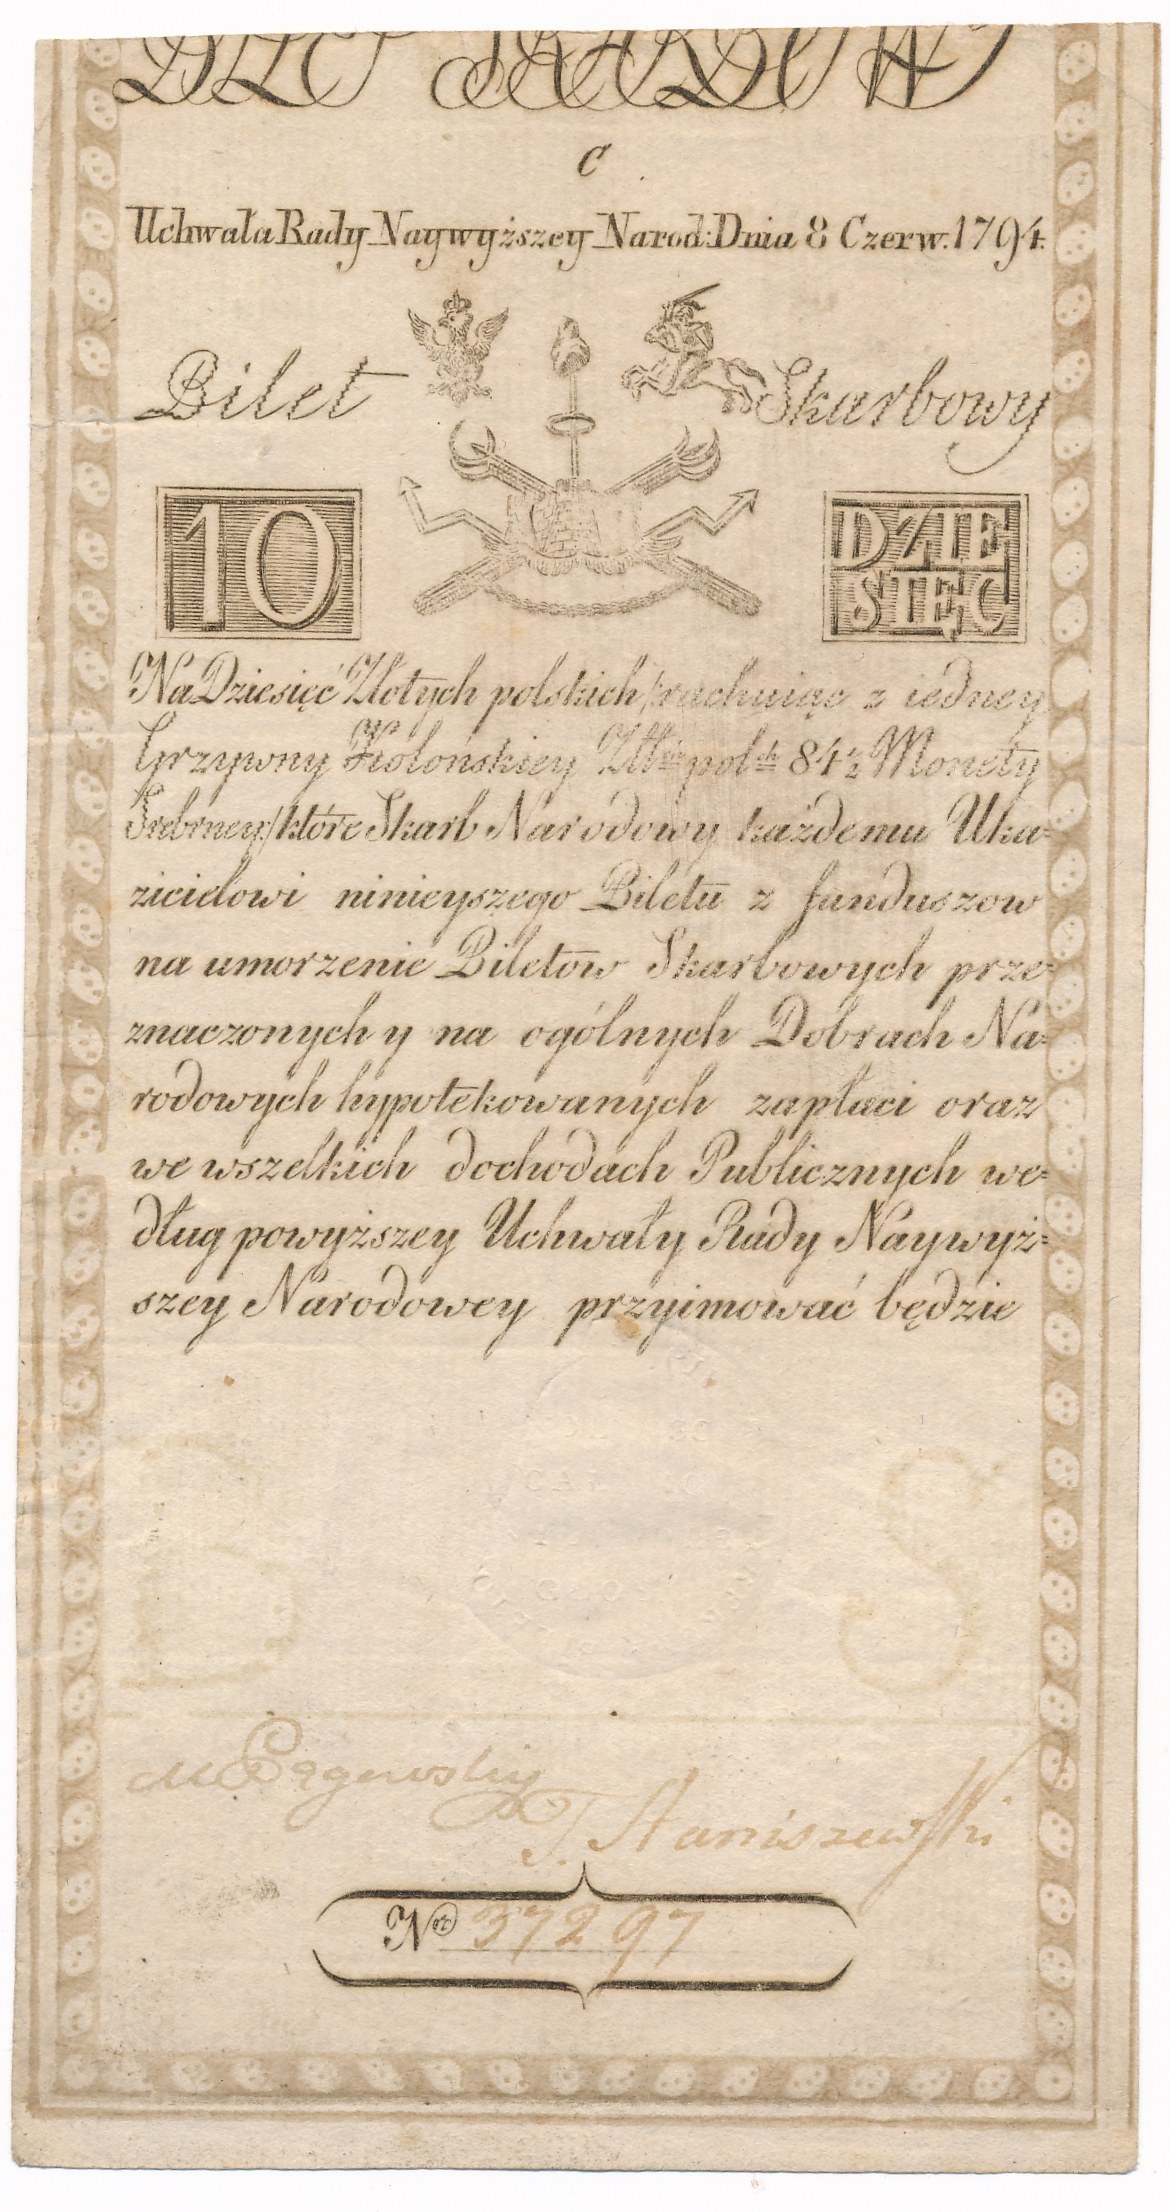 C
Uchwała Rady Naywyższey Narod: Dnia 8 Czerw. 1794.
Bilet Skarbowy
10 DZIE
SIĘC
Na Dziesięć Złotych polskich /:rachuiąc z iedney
Grzywny Kolońskiey Złł:ch pol:ch 84½ Monety
Srebrney/ które Skarb Narodowy każdemu Uka=
zicielowi ninieyszego Biletu z funduszow
na umorzenie Biletow Skarbowych prze=
znaczonych y na ogólnych Dobrach Na=
rodowych hypotekowanych zapłaci oraz
we wszelkich dochodach Publicznych we=
dług powyższey Uchwały Rady Naywyż=
szey Narodowey przyimować będzie
T. Staniszewski
Nro 37297